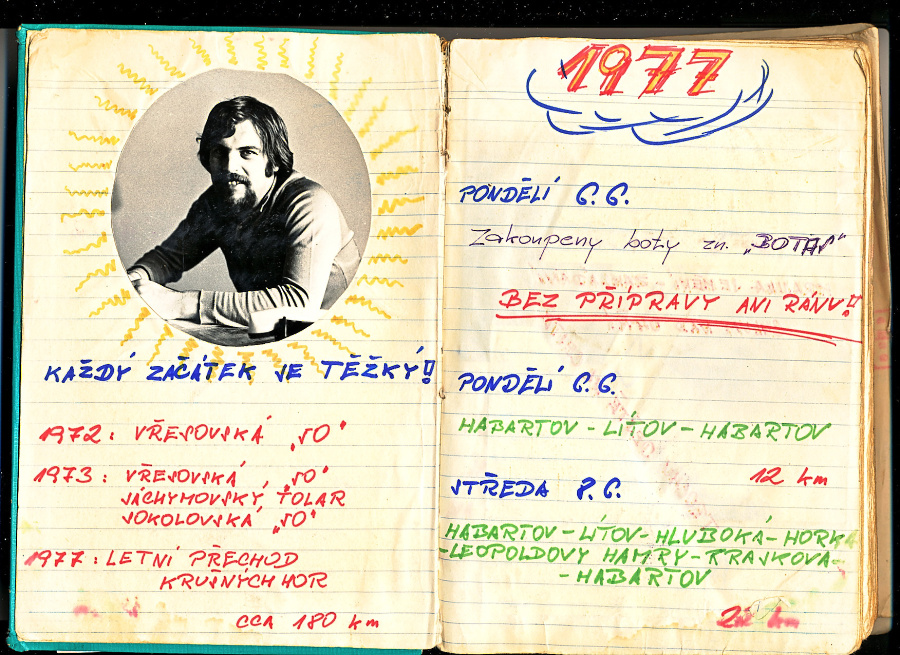 KAŽDÝ ZAČÁTEK JE TĚŽKÝ!!
1972: VŘESOVSKÁ „50“
1973: VŘESOVSKÁ „50“
JÁCHYMOVSKÝ TOLAR
SOKOLOVSKÁ „50“
1977: LETNÍ PŘECHOD
KRUŠNÝCH HOR
CCA 180 km
1977
PONDĚLÍ 6.6.
Zakoupeny boty zn. „BOTAS“
BEZ PŘÍPRAVY ANI RÁNU!!
PONDĚLÍ 6.6.
HABARTOV - LÍTOV - HABARTOV
12 km
STŘEDA 8.6.
HABARTOV - LÍTOV - HLUBOKÁ - HORKA
- LEOPOLDOVY HAMRY - KRAJKOVÁ -
- HABARTOV
km